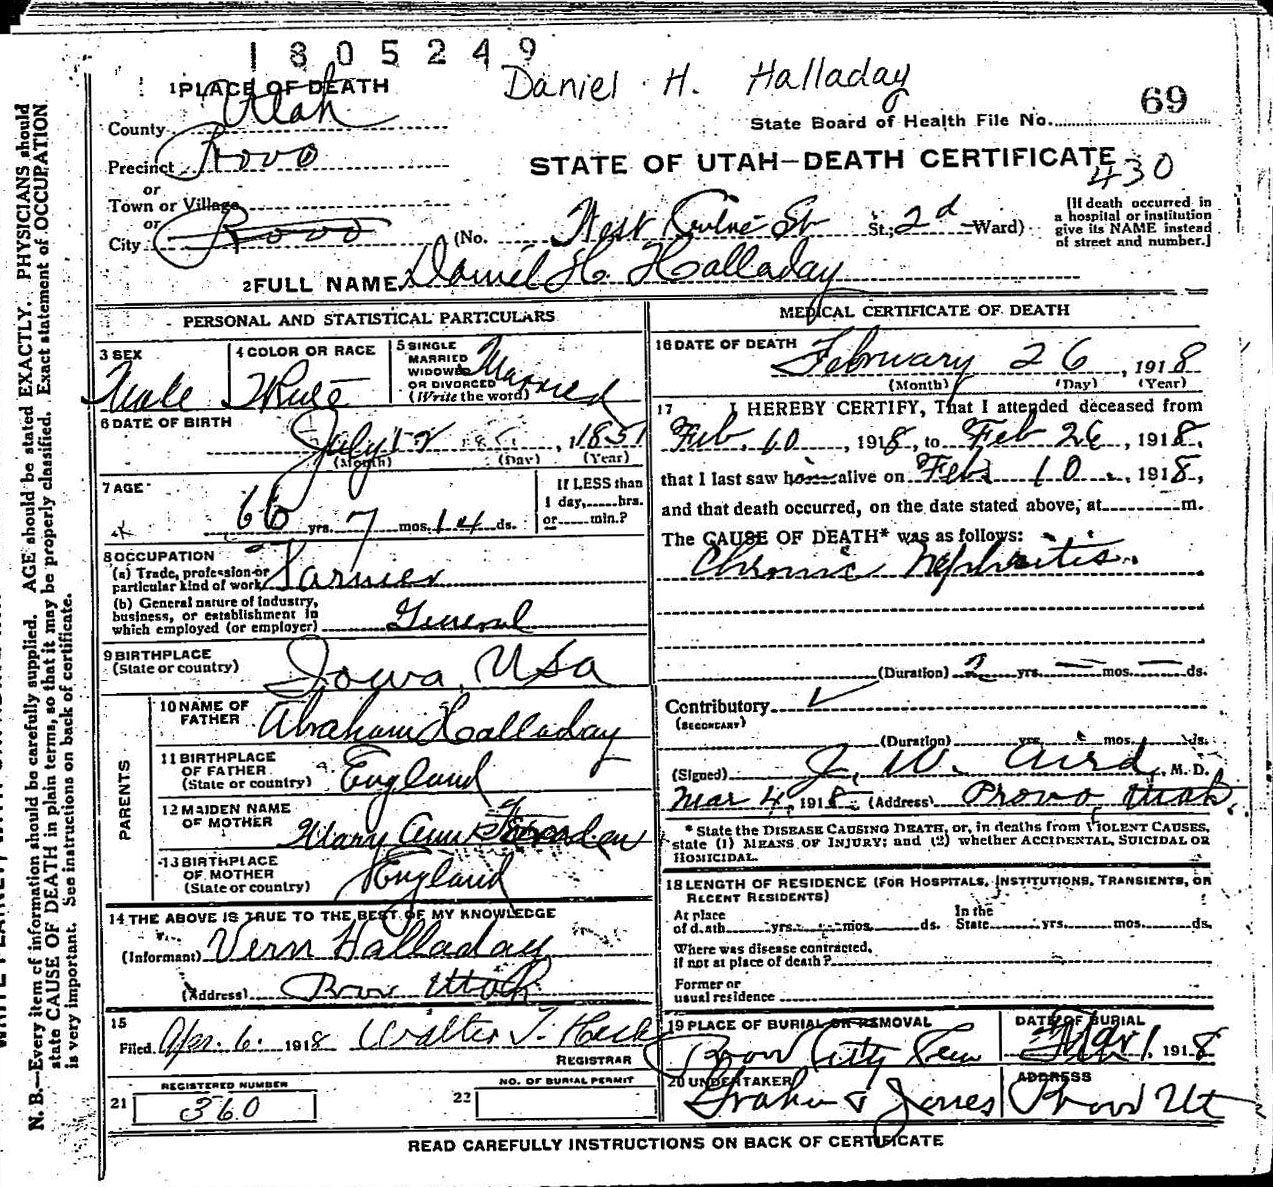 1805249
Daniel H. Halladay
1 PLACE OF DEATH
69
State Board of Health File No.
County Utah
Precinct Provo
STATE OF UTAH—DEATH CERTIFICATE
430
or
Town or Village
or
City Provo
(No. West St St.; 2d Ward)
[If death occurred in
a hospital or institution
give its NAME instead
of street and number.]
2 FULL NAME Daniel H. Halladay
PERSONAL AND STATISTICAL PARTICULARS
3 SEX
Male
4 COLOR OR RACE
White
5 SINGLE
MARRIED
WIDOWED
OR DIVORCED
(Write the word)
Married
6 DATE OF BIRTH
July 12, 1851
(Month) (Day) (Year)
7 AGE
66 yrs. 7 mos. 14 ds.
If LESS than
1 day, hrs.
or min.?
8 OCCUPATION
(a) Trade, profession or
particular kind of work Farmer
(b) General nature of industry,
business, or establishment in
which employed (or employer) General
9 BIRTHPLACE
(State or country) Iowa, USA
PARENTS
10 NAME OF
FATHER Abraham Halladay
11 BIRTHPLACE
OF FATHER
(State or country) England
12 MAIDEN NAME
OF MOTHER Mary Ann
13 BIRTHPLACE
OF MOTHER
(State or country) England
14 THE ABOVE IS TRUE TO THE BEST OF MY KNOWLEDGE
(Informant) Vern Halladay
(Address) Provo Utah
15
Filed Apr. 6. 1918 Walter T. Hasler
REGISTRAR
REGISTERED NUMBER
21 360
NO. OF BURIAL PERMIT
22
MEDICAL CERTIFICATE OF DEATH
16 DATE OF DEATH
February 26, 1918
(Month) (Day) (Year)
17 I HEREBY CERTIFY, That I attended deceased from
Feb. 10, 1918, to Feb 26, 1918,
that I last saw alive on Feb 10, 1918,
and that death occurred, on the date stated above, at m.
The CAUSE OF DEATH* was as follows:
Chronic Nephritis.
(Duration) 2 yrs. — mos. — ds.
Contributory
(SECONDARY)
(Duration) yrs. mos. ds.
(Signed) J. W. Aird, M. D.
Mar 4, 1918 (Address) Provo Utah.
* State the DISEASE CAUSING DEATH, or, in deaths from VIOLENT CAUSES,
state (1) MEANS OF INJURY; and (2) whether ACCIDENTAL, SUICIDAL OR
HOMICIDAL.
18 LENGTH OF RESIDENCE (FOR HOSPITALS, INSTITUTIONS, TRANSIENTS, OR
RECENT RESIDENTS)
At place
of death yrs. mos. ds.
In the
State yrs. mos. ds.
Where was disease contracted,
if not at place of death?
Former or
usual residence
19 PLACE OF BURIAL OR REMOVAL
Provo City Cem
DATE OF BURIAL
Mar 1, 1918
20 UNDERTAKER
Graham & Jones
ADDRESS
Provo Ut
READ CAREFULLY INSTRUCTIONS ON BACK OF CERTIFICATE
N. B.—Every item of information should be carefully supplied. AGE should be stated EXACTLY. PHYSICIANS should
state CAUSE OF DEATH in plain terms, so that it may be properly classified. Exact statement of OCCUPATION
is very important. See instructions on back of certificate.